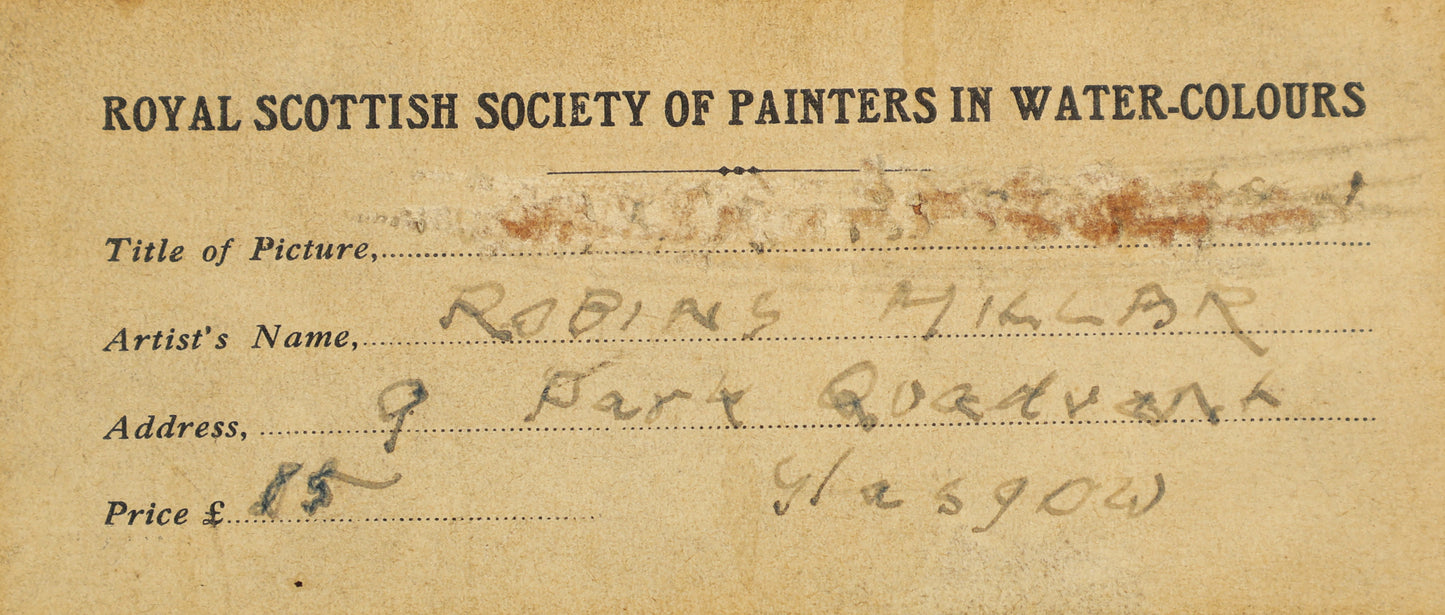 ROYAL SCOTTISH SOCIETY OF PAINTERS IN WATER-COLOURS
Title of Picture,
Artist's Name, ROBINS MILLAR
Address, 9 Park Quadrant
Price £ 15 Glasgow